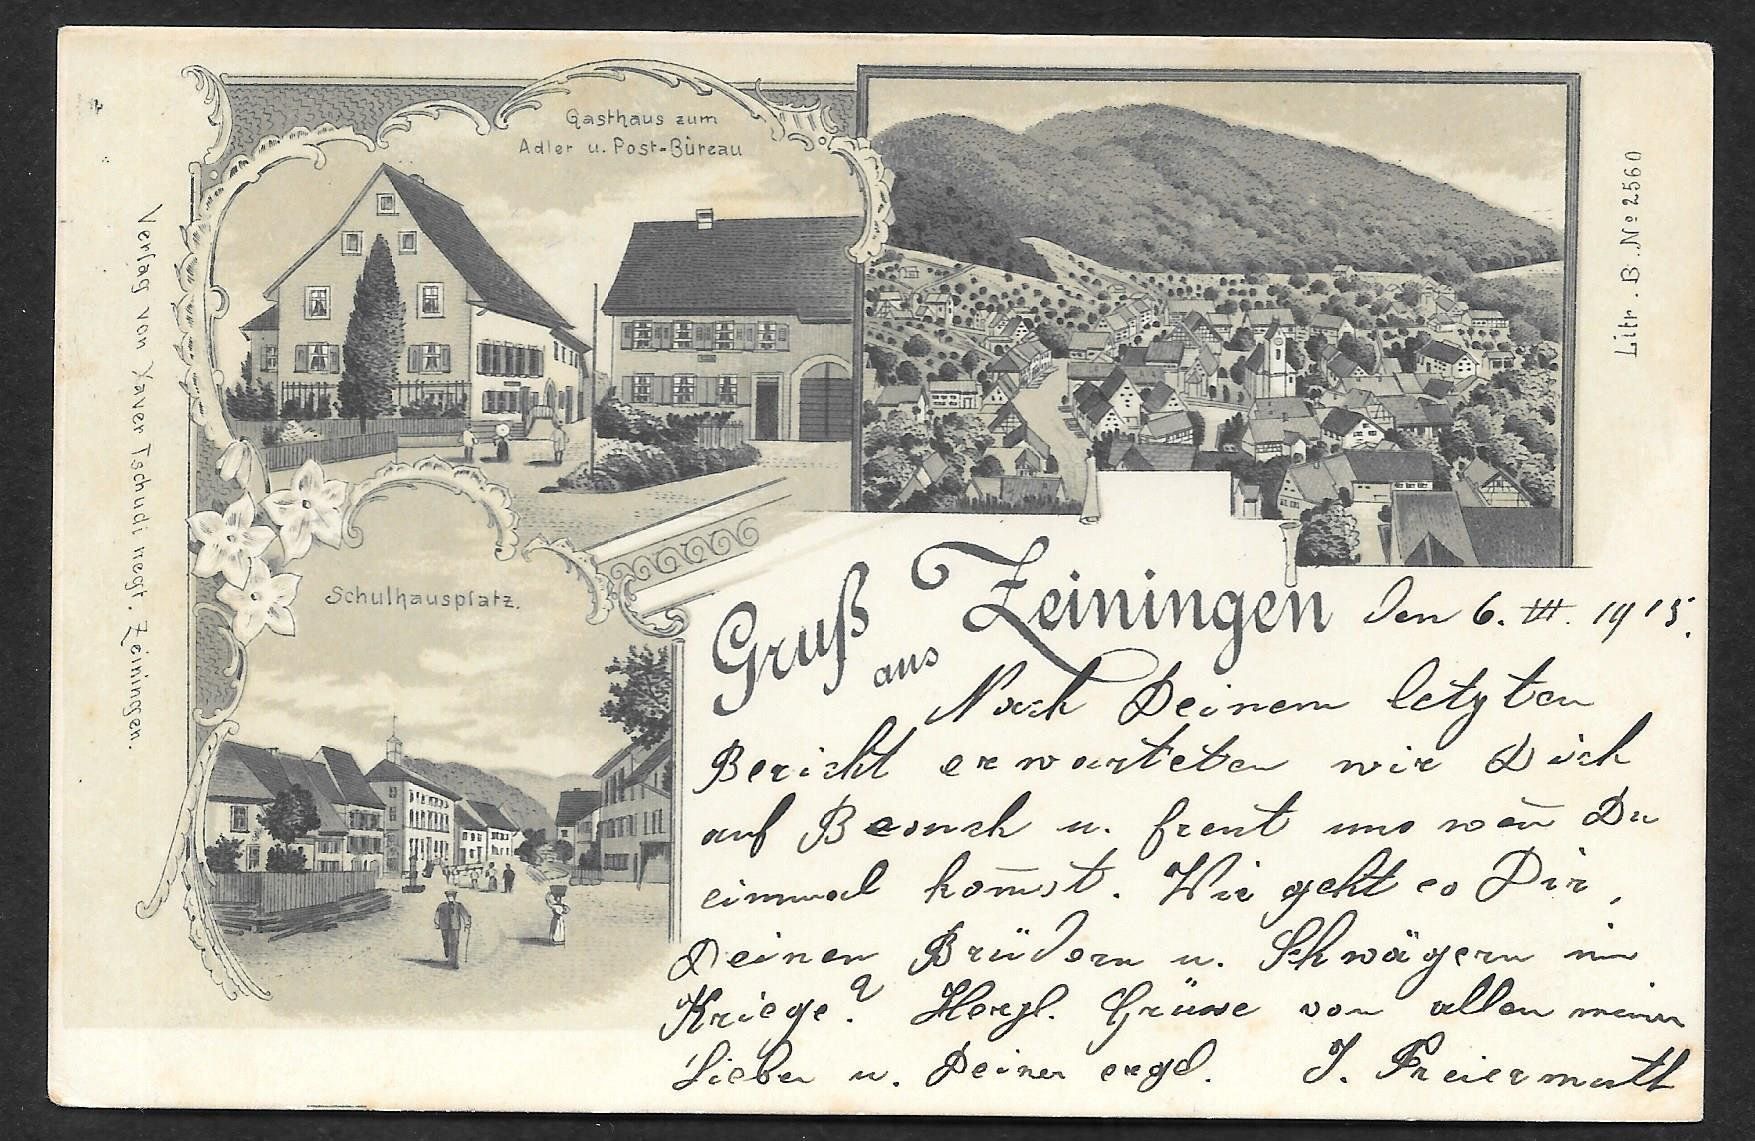 Gasthaus zum
Adler u. Post-Büreau
Litr. B. No 2560
Verlag von Xaver Tschudi negt. Zeiningen.
Schulhausplatz.
Gruß aus Zeiningen
den 6. VII. 1915.
Nach Deinem letzten
Bericht erwarteten wir Dich
auf Besuch u. freut uns wen̄ Du
einmal kom̄st. Wie geht es Dir,
Deinen Brüdern u. Schwägern im
Kriege? Herzl. Grüsse von allen meinen
Lieben u. Deiner ergd. J. Freiermuth